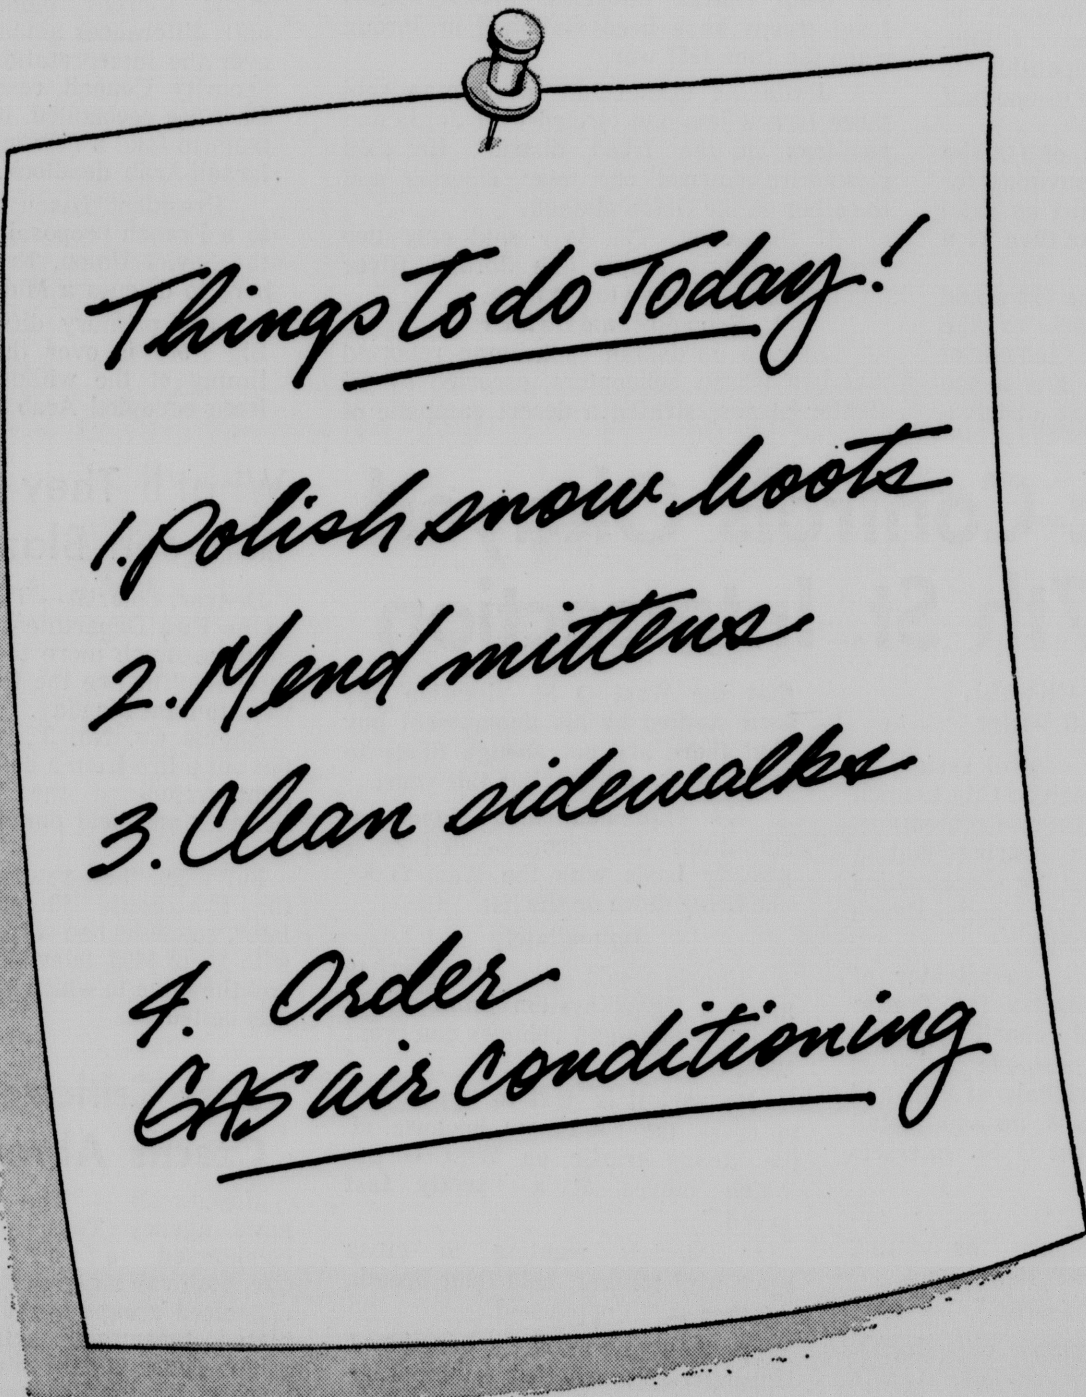 Things to do Today!
1. Polish snow boots
2. Mend mittens
3. Clean sidewalks
4. Order
GAS air conditioning